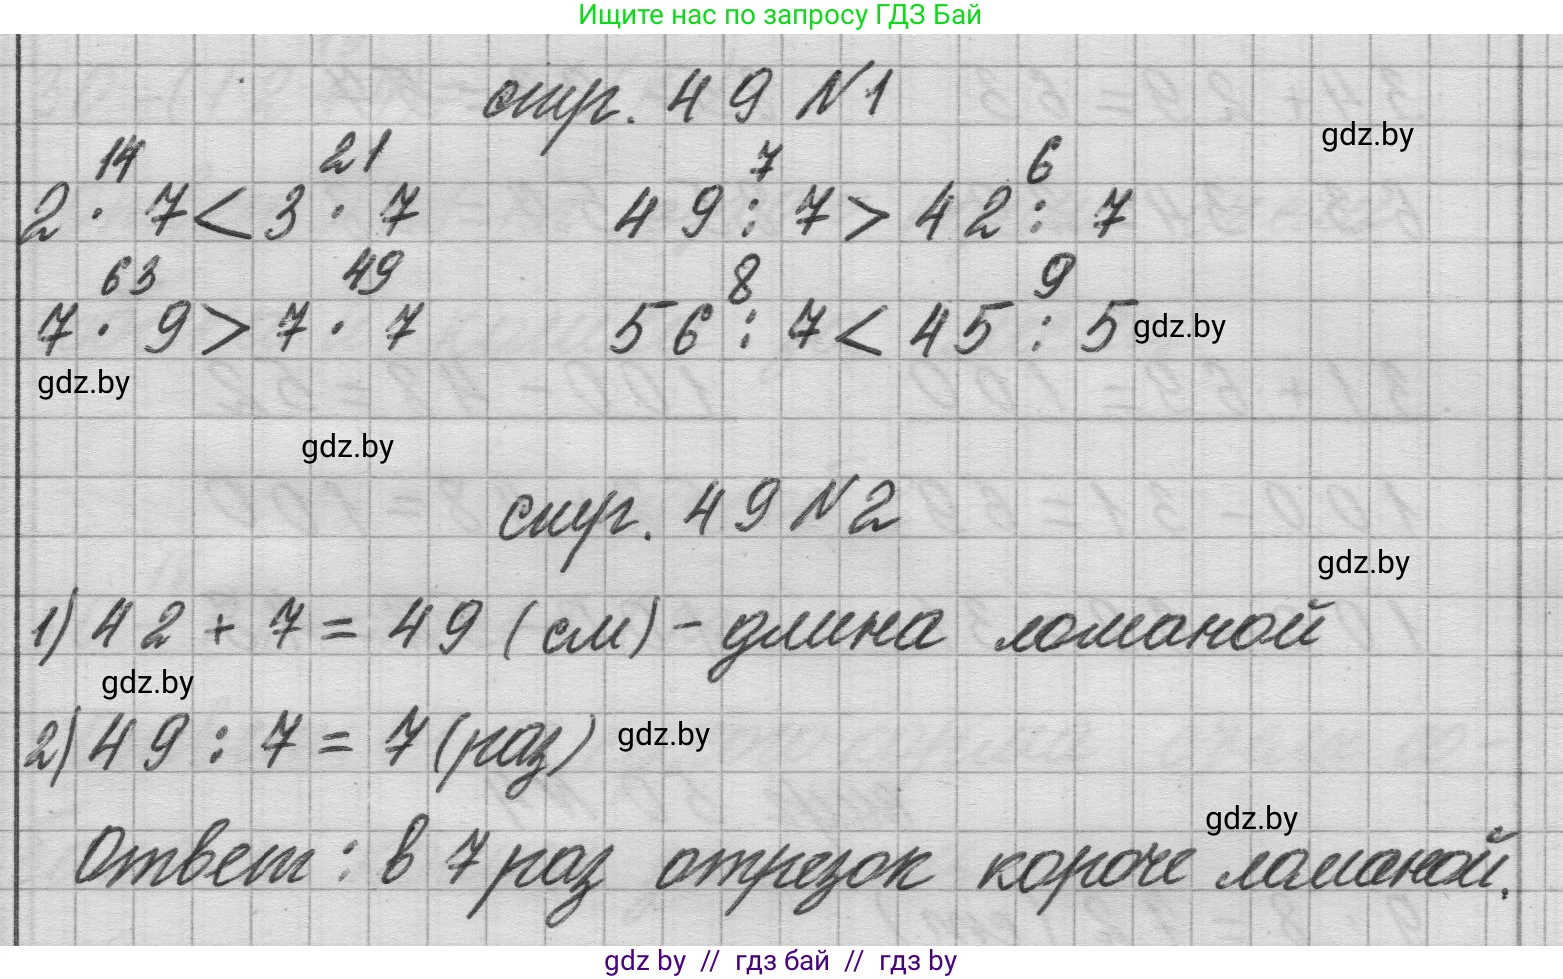 Ищите нас по запросу ГДЗ Бай
стр. 49 №1
gdz.by
14 21 7 6
2 · 7 < 3 · 7 49 : 7 > 42 : 7
63 49 8 9
7 · 9 > 7 · 7 56 : 7 < 45 : 5
gdz.by
gdz.by
gdz.by
стр. 49 №2
gdz.by
1) 42 + 7 = 49 (см) - длина ломаной
gdz.by
2) 49 : 7 = 7 (раз)
gdz.by
gdz.by
Ответ: в 7 раз отрезок короче ломаной.
gdz by // гдз бай // гдз by